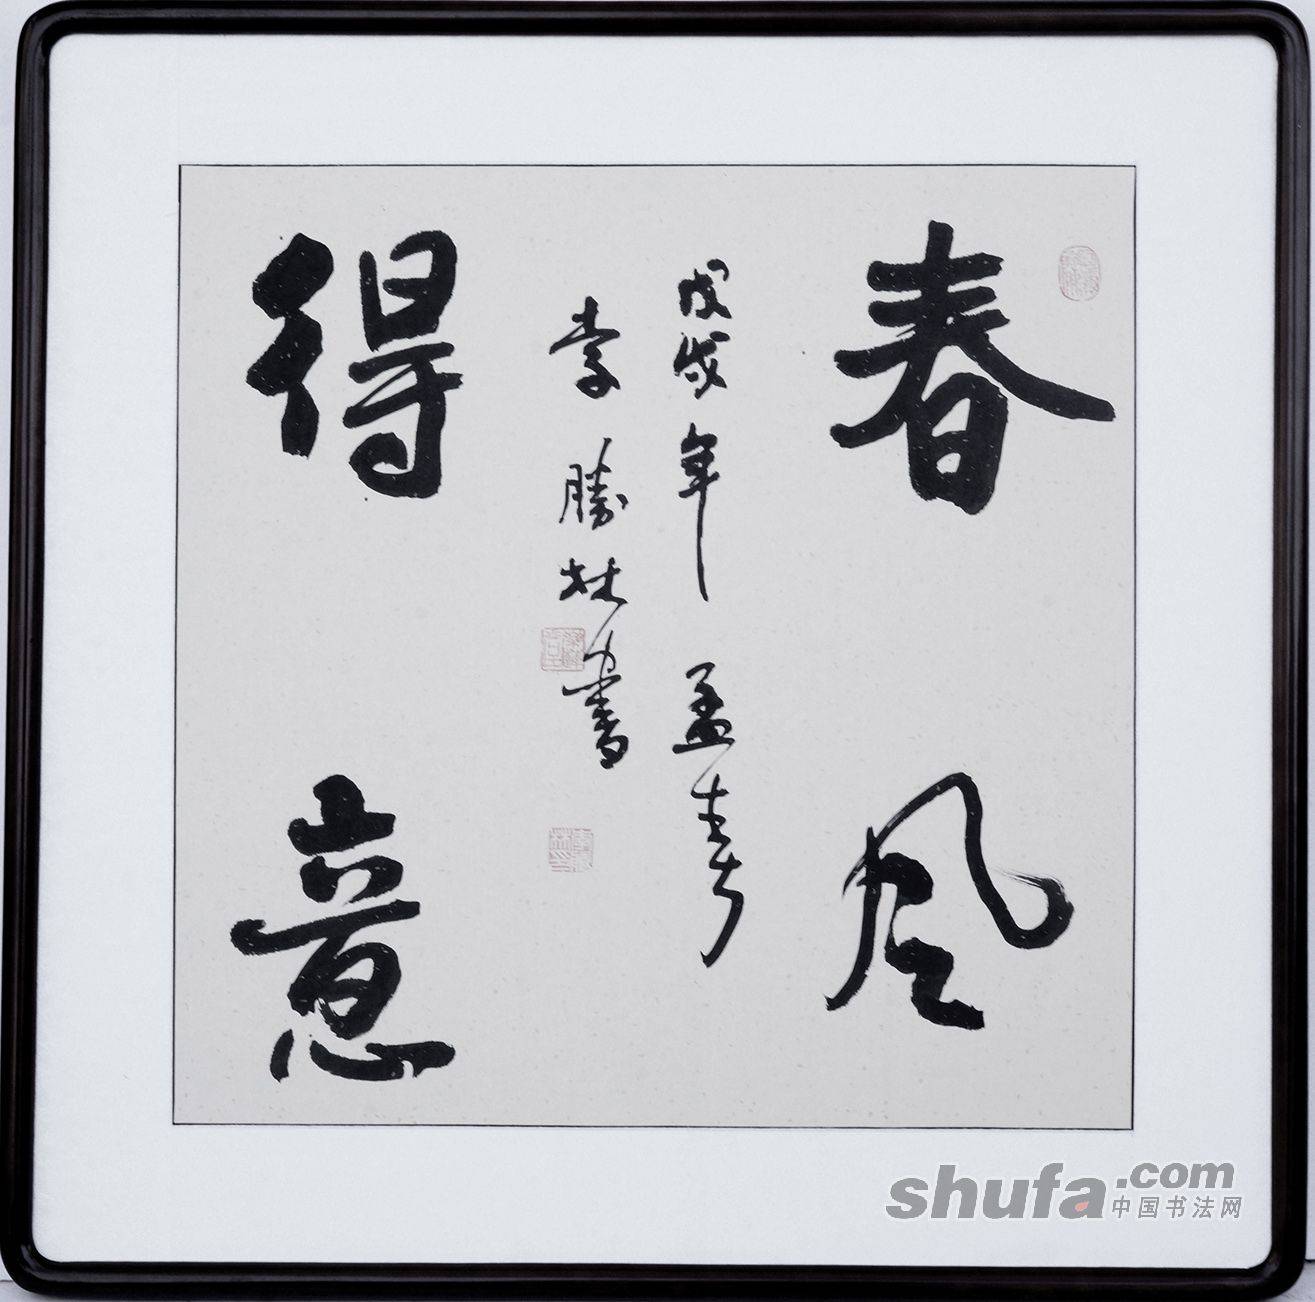 春风
戊戌年孟春
李勝林书
得意
shufa.com
中国书法网